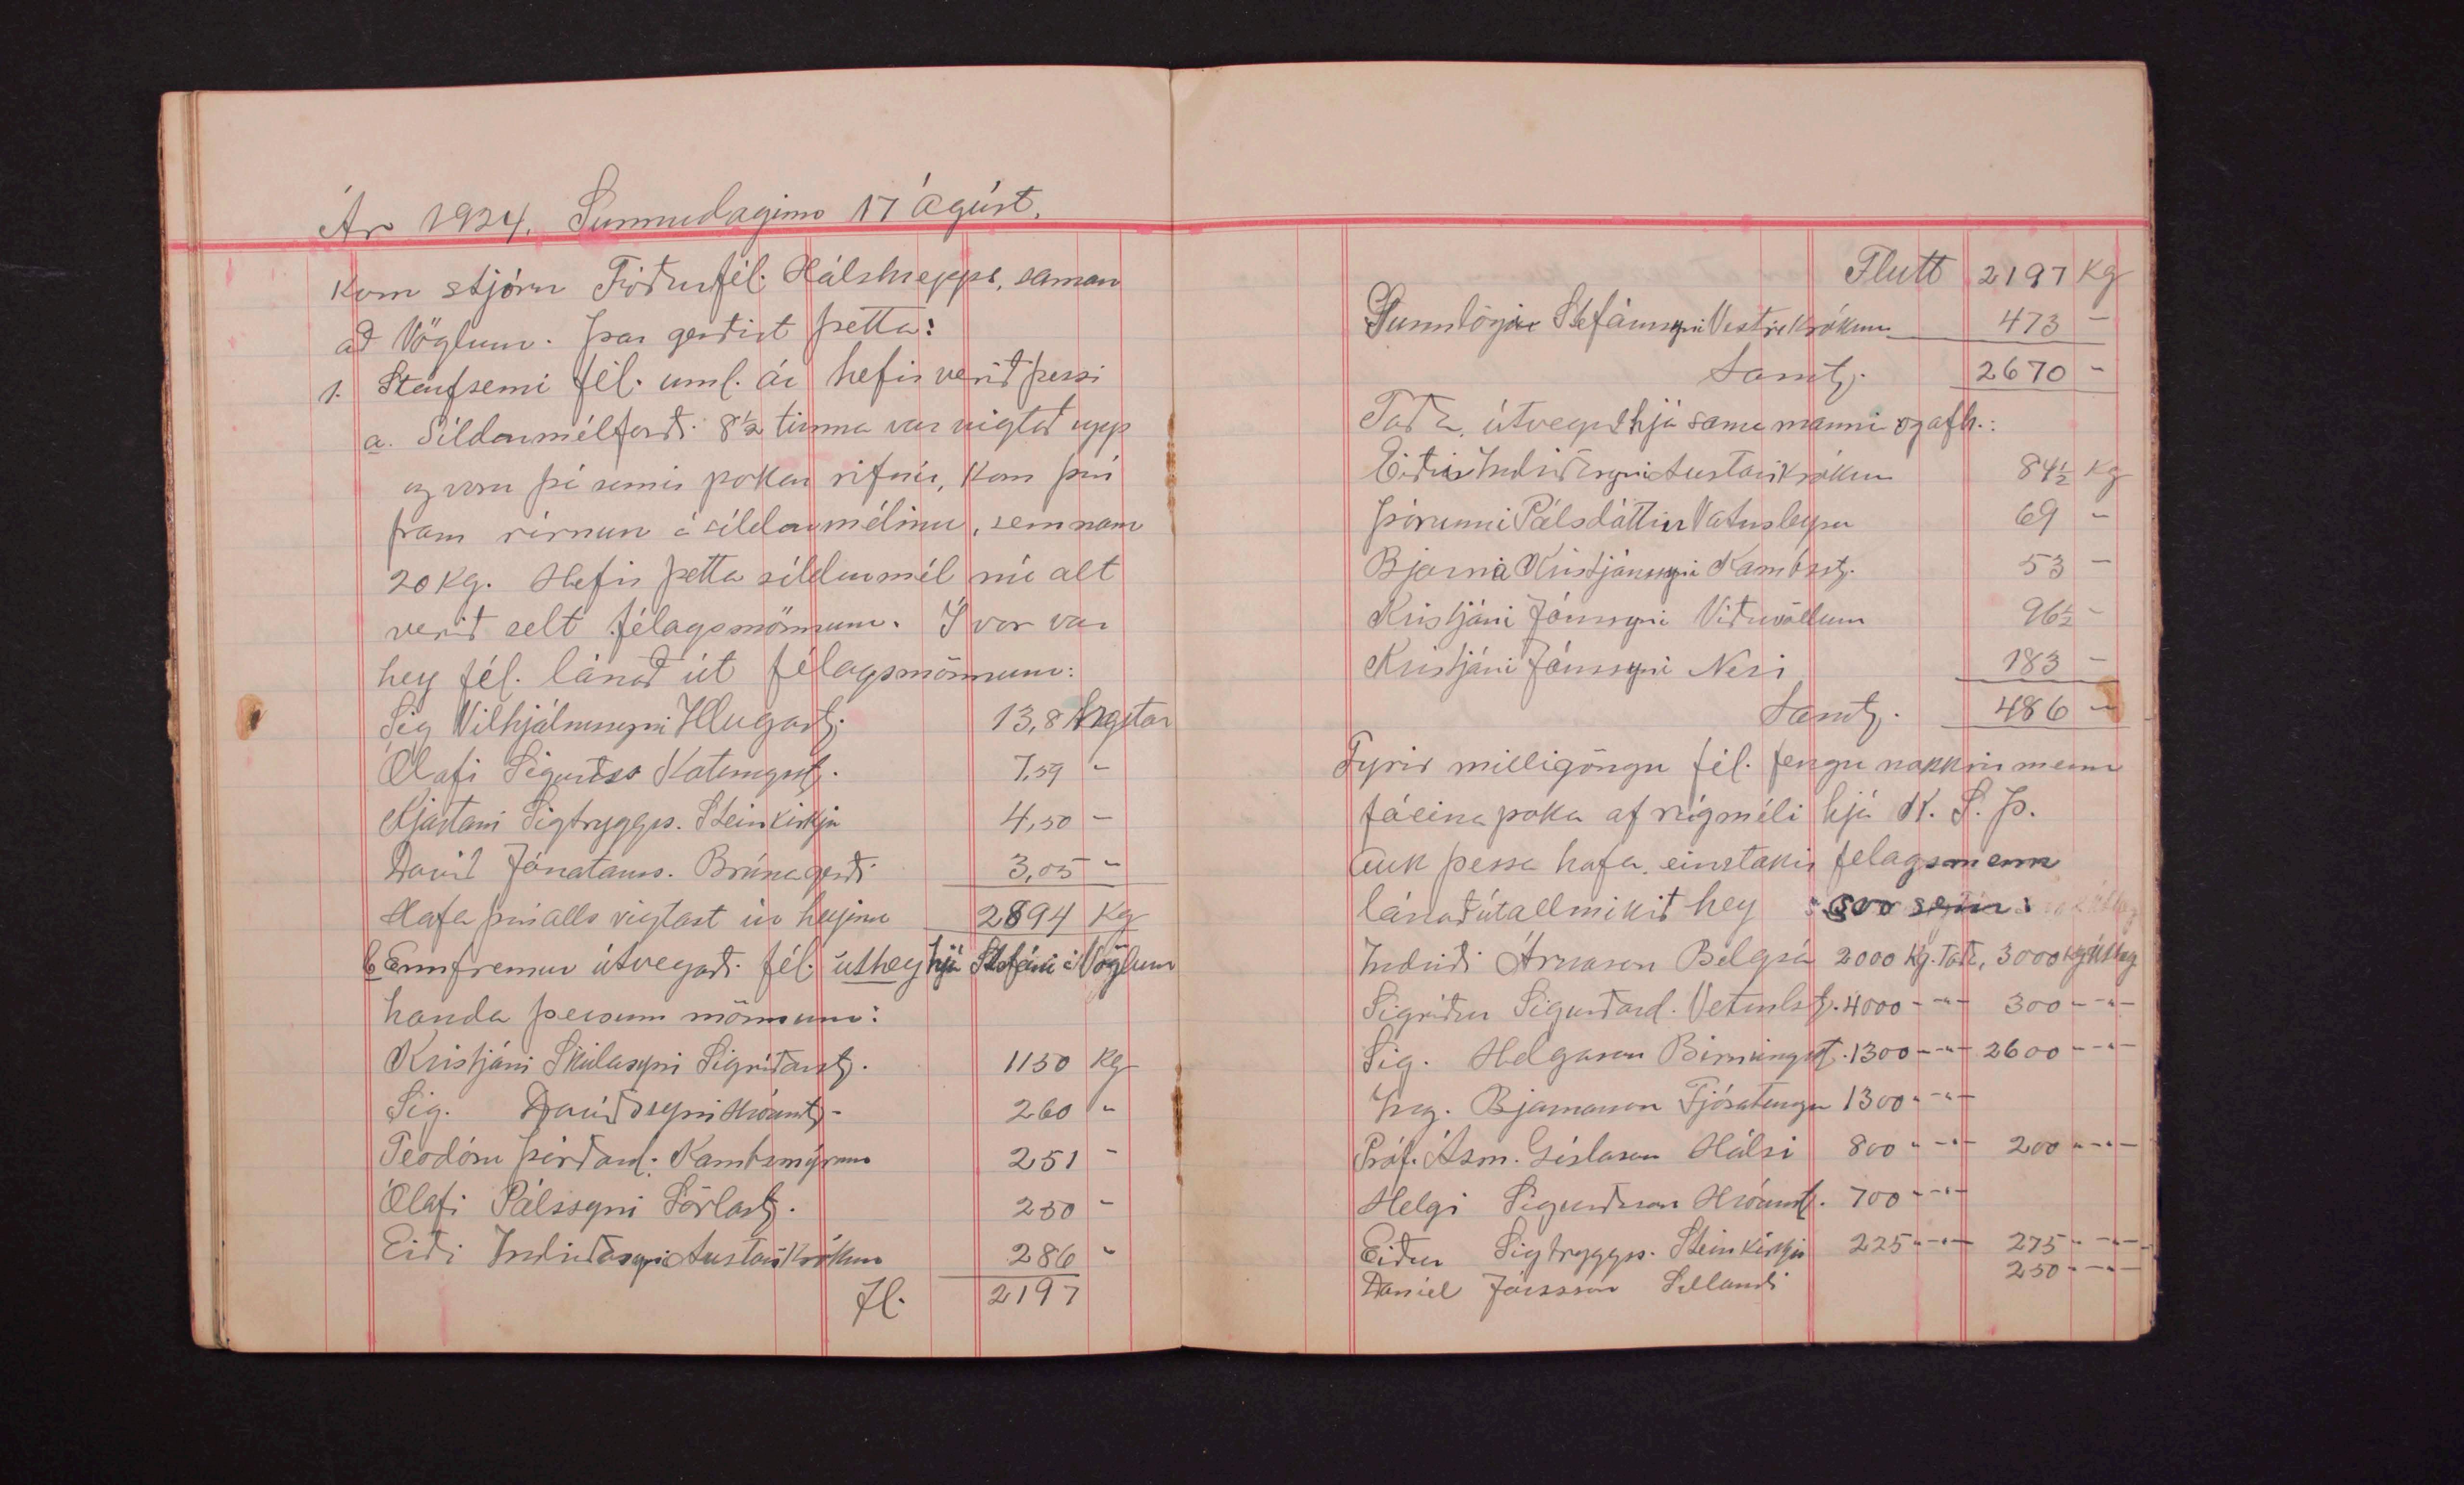 Ár 1924. Sunnudaginn 17 Ágúst.
Kom stjórn Fóðurfél. Hálshrepps, saman
að Vöglum. Þar gerðist þetta:
1. Starfsemi fél. uml. ár hefir verið þessi
a. Síldarmélforði 8½ tunna var vigtað upp
og voru þá sumir pokar rifnir, kom því
fram rírnun á síldarmélinu, sem nam
20 kg. Hefir þetta síldarmél nú alt
verið selt félagsmönnum. Í vor var
hey fél. lánað út félagsmönnum:
Sig Vilhjálmssyni Illugast. 13,8
Ólafi Sigurðss Kotungsst. 7,59 "
Kjartani Sigtryggs. Steinkirkju 4,50 -
Davíð Jónatans. Brúnagerði 3,05 "
Hafa því alls vigtast úr heyinu 2894 Kg
b Ennfremur útvegaði fél. úthey hjá Stefáni á Vöglum
handa þessum mönnum:
Kristjáni Skúlasyni Sigríðarst. 1150 Kg
Sig. Davíðssyni Hróarst. 260 "
Teodóru Þórðard. Kambsmýrum 251 -
Ólafi Pálssyni Sörlast. 250 -
Eiði Indriðasyni Austari Krókum 286 "
Fl. 2197
Flutt 2197 kg
Gunnlögi Stefánssyni Vestri Krókum 473 -
Samtl. 2670 -
Taða útveguð hjá sama manni og afh.:
Eiði Indriðasyni Austari Krókum 84½ Kg
Þórunni Pálsdóttir Vatnsleysu 69 -
Bjarna Kristjánssyni Kambsst. 53 -
Kristjáni Jónssyni Víðivöllum 96½ -
Kristjáni Jónssyni Nesi 183 -
Samtl. 486 -
Fyrir milligöngu fél. fengu nokkrir menn
fáeina poka af rúgméli hjá K. S. Þ.
Auk þessa hafa einstakir félagsmenn
lánað út allmikið hey svo sem:
Indriði Árnason Belgsá 2000 Kg. taða, 3000 kg úthey
Sigríður Sigurðard. Veturlst. 4000 - " - 300 - " -
Sig. Helgason Birningsst. 1300 - " - 2600 - " -
Ing. Bjarnason Fjósatungu 1300 - " -
Próf. Ásm. Gíslason Hálsi 800 " - " - 200 " - " -
Helgi Sigurðsson Hróarst. 700 - " -
Eiður Sigtryggs. Steinkirkju 225 - " - 275 - " -
Daníel Jónsson Sellandi 250 - " -